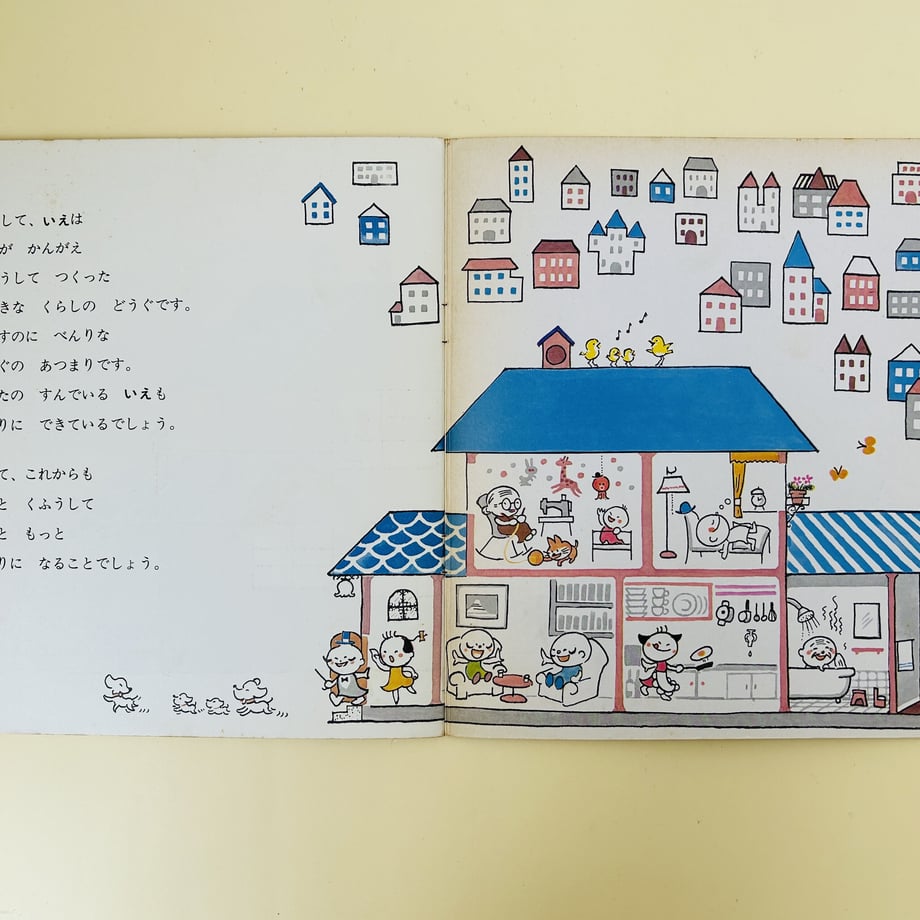 して、いえは
が　かんがえ
うして　つくった
きな　くらしの　どうぐです。
すのに　べんりな
ぐの　あつまりです。
たの　すんでいる　いえも
りに　できているでしょう。
て、これからも
と　くふうして
と　もっと
りに　なることでしょう。